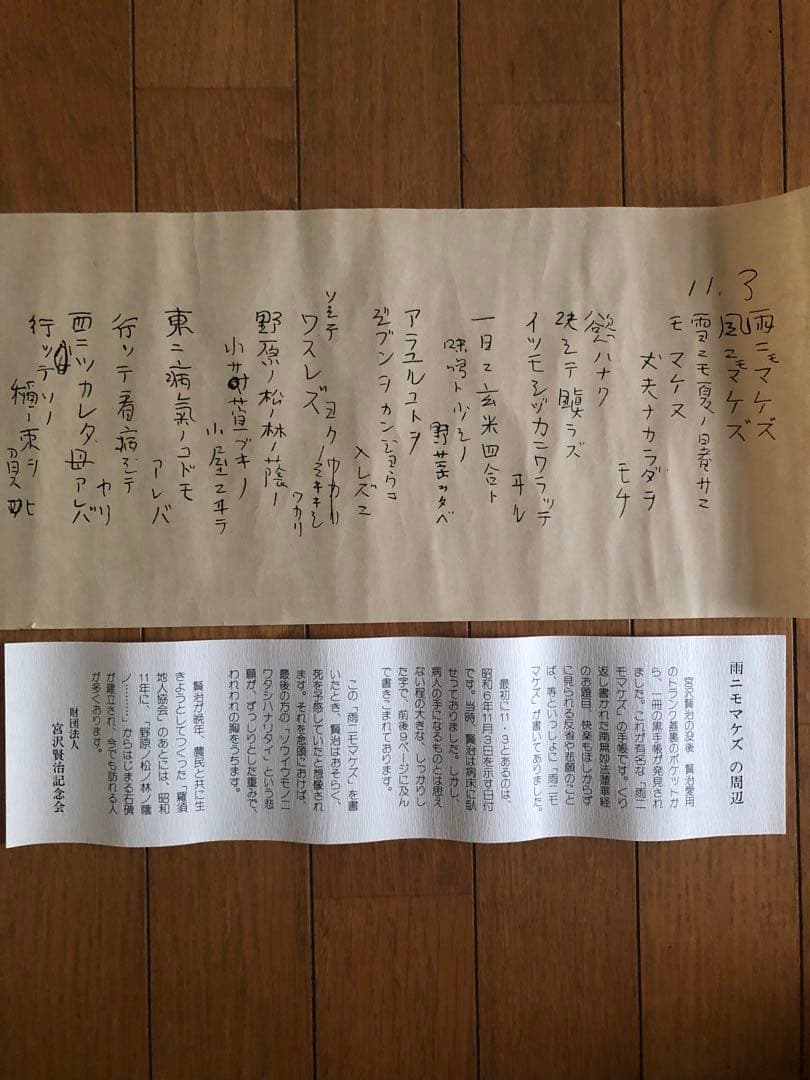 11.3
雨ニモマケズ
風ニモマケズ
雪ニモ夏ノ暑サニ
モマケヌ
丈夫ナカラダヲ
モチ
慾ハナク
決シテ瞋ラズ
イツモシヅカニワラッテ
ヰル
一日ニ玄米四合ト
味噌ト少シノ
野菜ヲタベ
アラユルコトヲ
ジブンヲカンジョウニ
入レズニ
ヨクミキキシ
ワカリ
ソシテ
ワスレズ
野原ノ松ノ林ノ蔭ノ
小サナ萓ブキノ
小屋ニヰテ
東ニ病氣ノコドモ
アレバ
行ッテ看病シテ
ヤリ
西ニツカレタ母アレバ
行ッテソノ
稲ノ束ヲ
負ヒ
雨ニモマケズ の周辺
宮沢賢治の没後 賢治愛用
のトランク蓋裏のポケットか
ら、一冊の黒手帳が発見され
ました。これが有名な「雨ニ
モマケズ」の手帳です。くり
返し書かれた南無妙法蓮華経
のお題目、快楽もほしからず
に見られる反省や悲願のこと
ば、等といっしょに「雨ニモ
マケズ」が書いてありました。
最初に11・3とあるのは、
昭和6年11月3日を示す日付
です。当時、賢治は病床に臥
せっておりました。しかし、
病人の手になるものとは思え
ない程の大きな、しっかりし
た字で、前後9ページに及ん
で書きこまれております。
この「雨ニモマケズ」を書
いたとき、賢治はおそらく、
死を予感していたと想像され
ます。それを念頭におけば、
最後の方の「ソウイウモノニ
ワタシハナリタイ」という悲
願が、ずっしりとした重みで、
われわれの胸をうちます。
賢治が晩年、農民と共に生
きようとしてつくった「羅須
地人協会」のあとには、昭和
11年に、「野原ノ松ノ林ノ蔭
ノ………」からはじまる石碑
が建立され、今でも訪れる人
が多くあります。
財団法人
宮沢賢治記念会